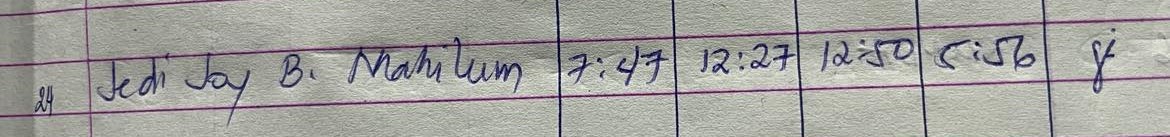 24 Jedi Joy B. Mahilum 7:47 12:27 12:50 5:56